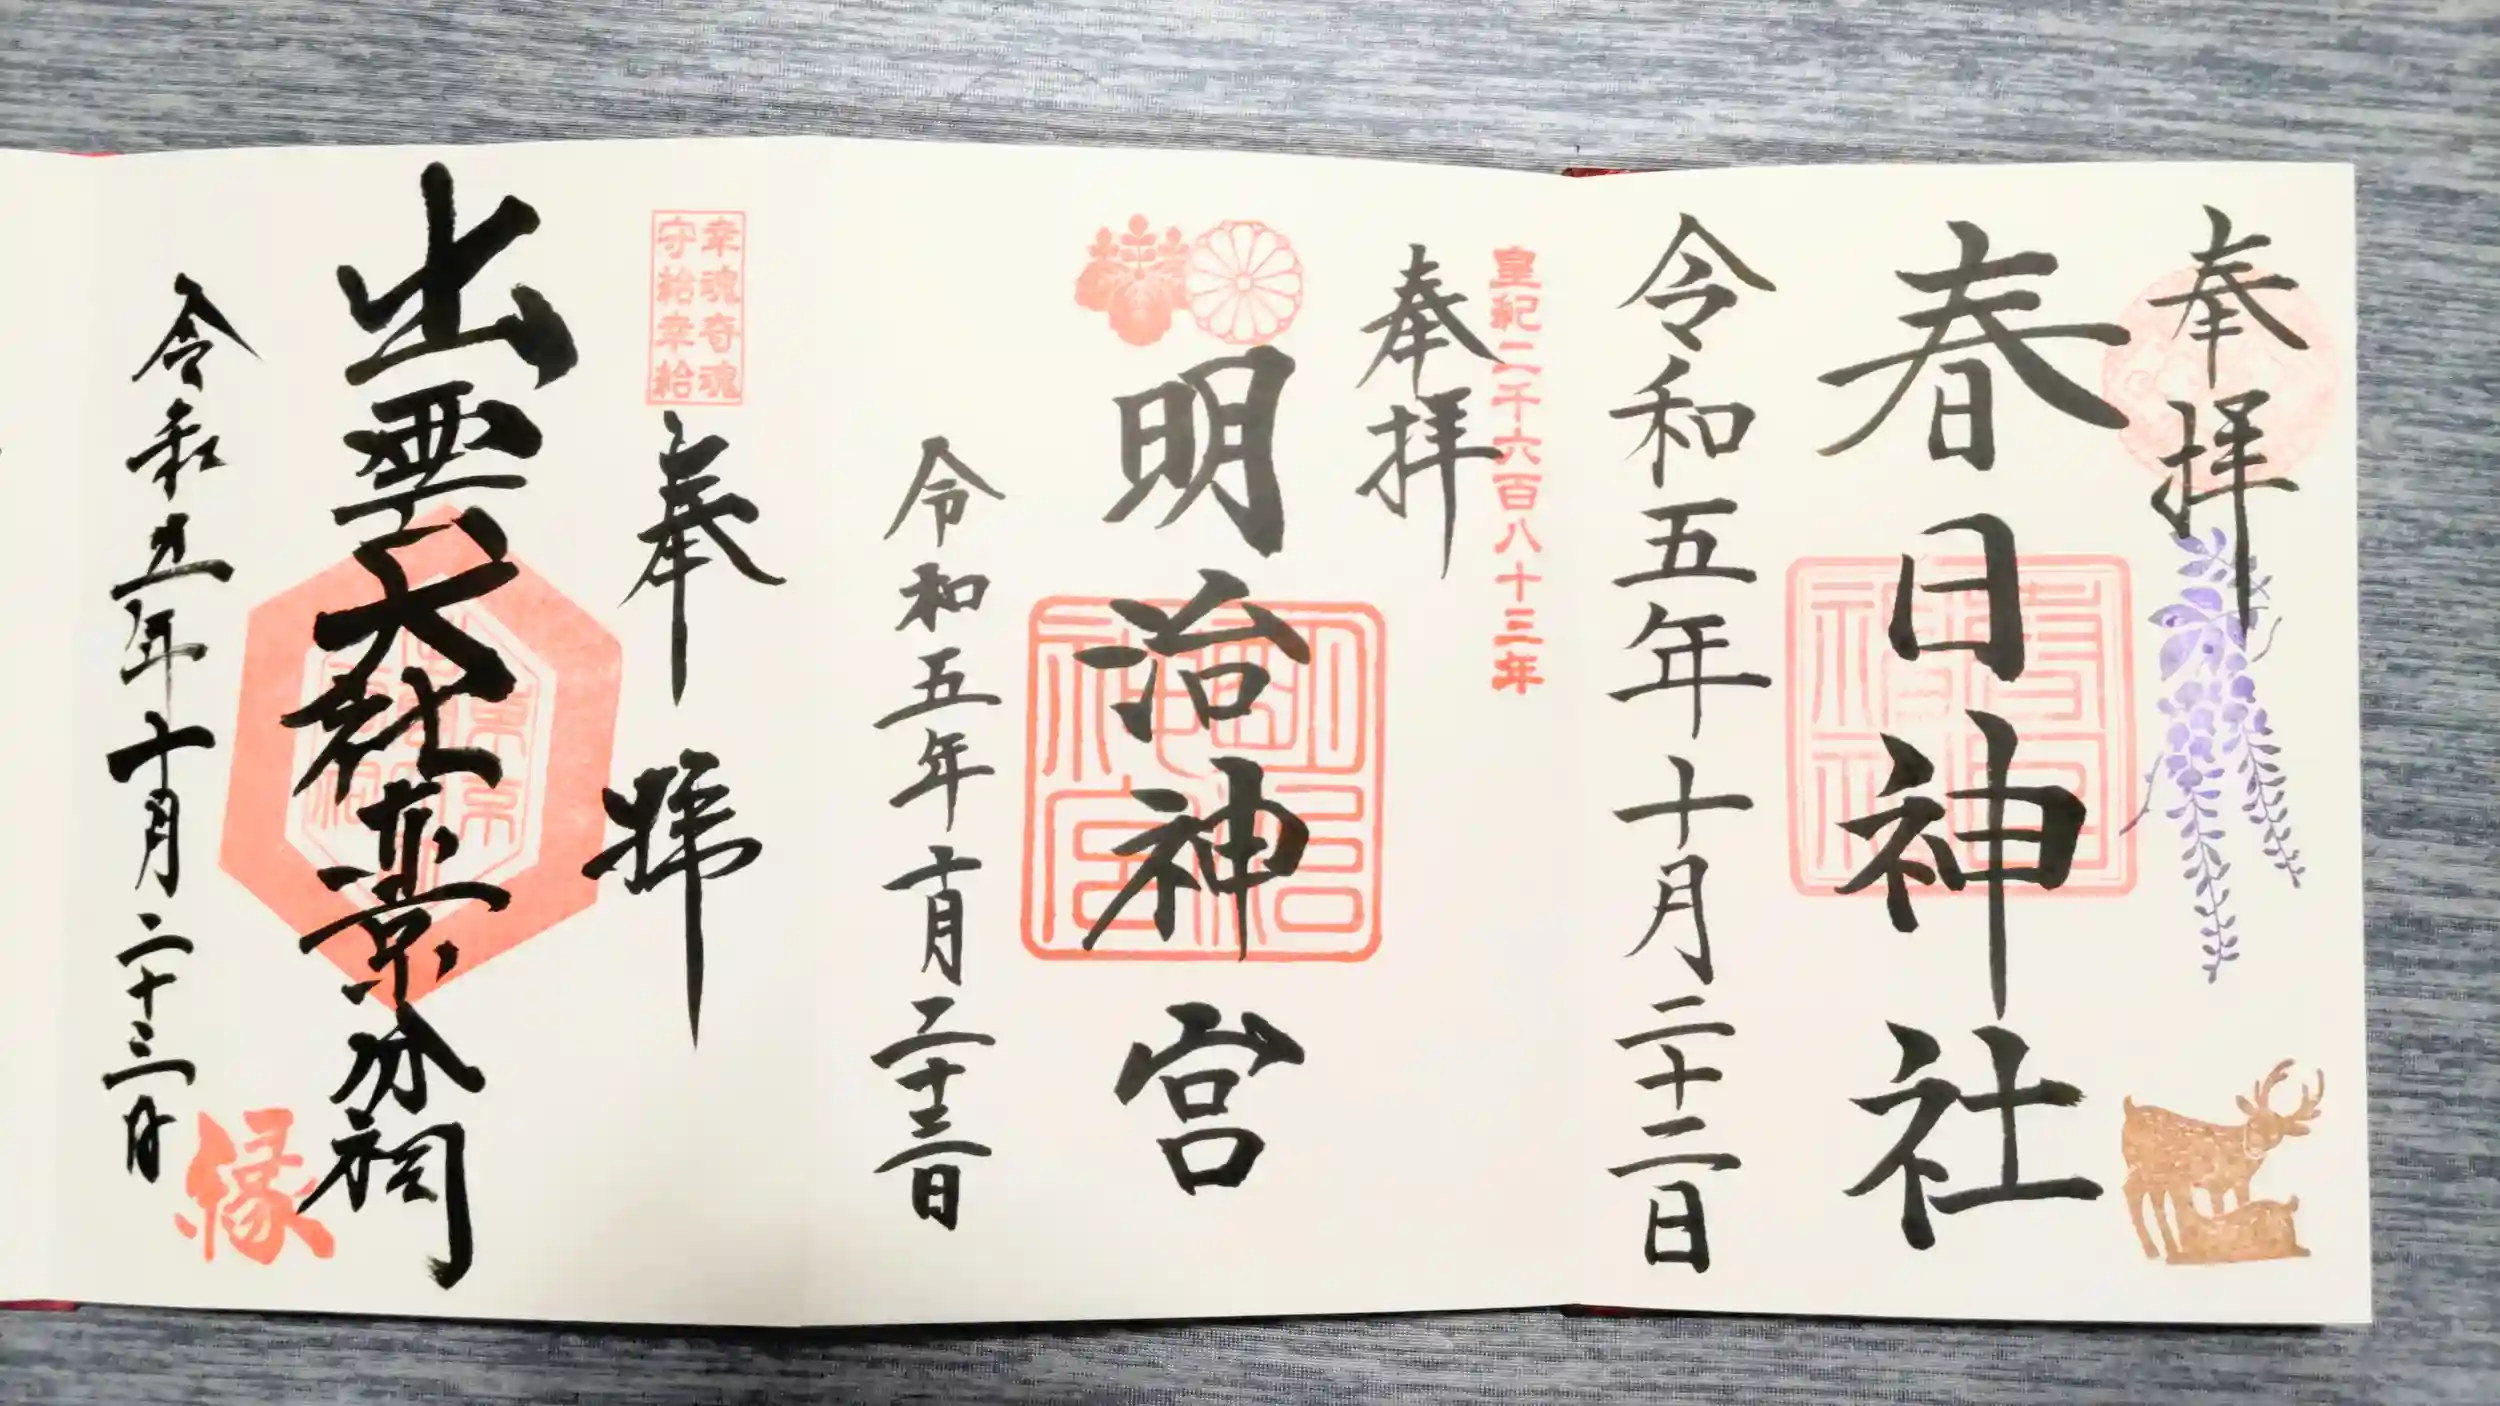 奉拝
春日神社
令和五年十月二十二日
皇紀二千六百八十三年
奉拝
明治神宮
明治
神宮
令和五年十月二十三日
幸魂奇魂
守給幸給
奉拝
出雲大社東京分祠
令和五年十月二十三日
縁